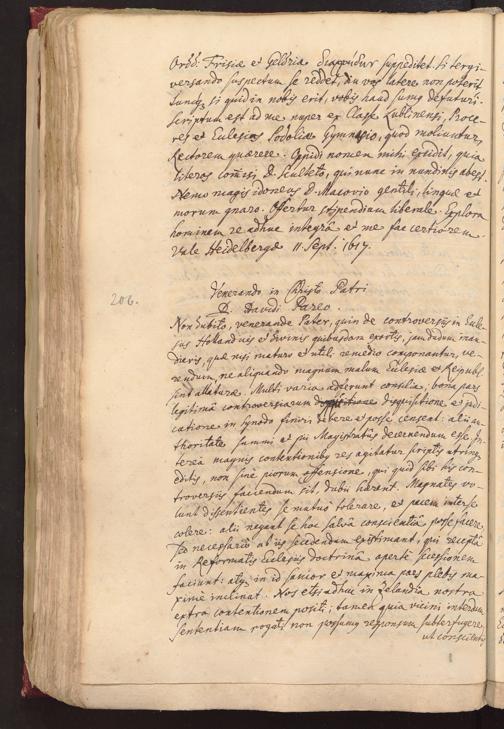 Ordd. Frisiæ et Geldriæ suppeditet. Si tergi-
versando suspectum se reddet, diu vos latere non poterit.
si quid in nobis erit, vobis haud sumus defuturi.
Scriptum est ad me nuper ex Classe Lublinensi, Proce-
res et Ecclesias Podoliæ Gymnasio, quod moliuntur,
Rectorem quærere. Oppidi nomen mihi excidit, quia
literas comisi D. Sculteto, qui nunc in nundinis abest.
Nemo magis idoneus D. Macovio gentili, linguæ et
morum gnaro. Offertur stipendium liberale. Explora
hominem re adhuc integrâ et me fac certiorem.
Vale Heidelbergæ 11 Sept. 1617.
206.
Venerando in Christo Patri
D. Davidi Pareo.
Non dubito, venerande Pater, quin de controversiis in Eccle-
siis Hollandicis et divinis quibusdam exortis, jamdudum
audiveris, quæ nisi maturo et utili remedio componantur, ve-
rendum, ne aliquando magnum malum Ecclesiæ et Reipubl.
sint allaturæ. Multi varia adferunt consilia; bona pars
legitimâ controversiarum disquisitione et judi-
catione in synodo finiri, debere et posse censeat: alii au-
thoritate summi et pii Magistratus decernendum esse. In-
tereà magnis contentionibus res agitatur scriptis utrinque
editis, non sine piorum offensione, qui quid sibi his con-
troversiis faciendum sit, dubii hærent. Magnates vo-
lunt dissentientes se mutuò tolerare, et pacem inter se
colere: alii negant se hoc salvâ conscientiâ posse facere,
sed necessariò ab iis secedendum existimant, qui receptâ
in Reformatis Ecclesiis doctrinâ apertè secessionem
faciunt: atque in id sanior et maxima pars plebis ma-
ximè inclinat. Nos etsi adhuc in Zelandia nostra
extra contentionem positi; tamen quia vicini interdum
sententiam rogati non possumus responsum subterfugere,
ut conscientiis